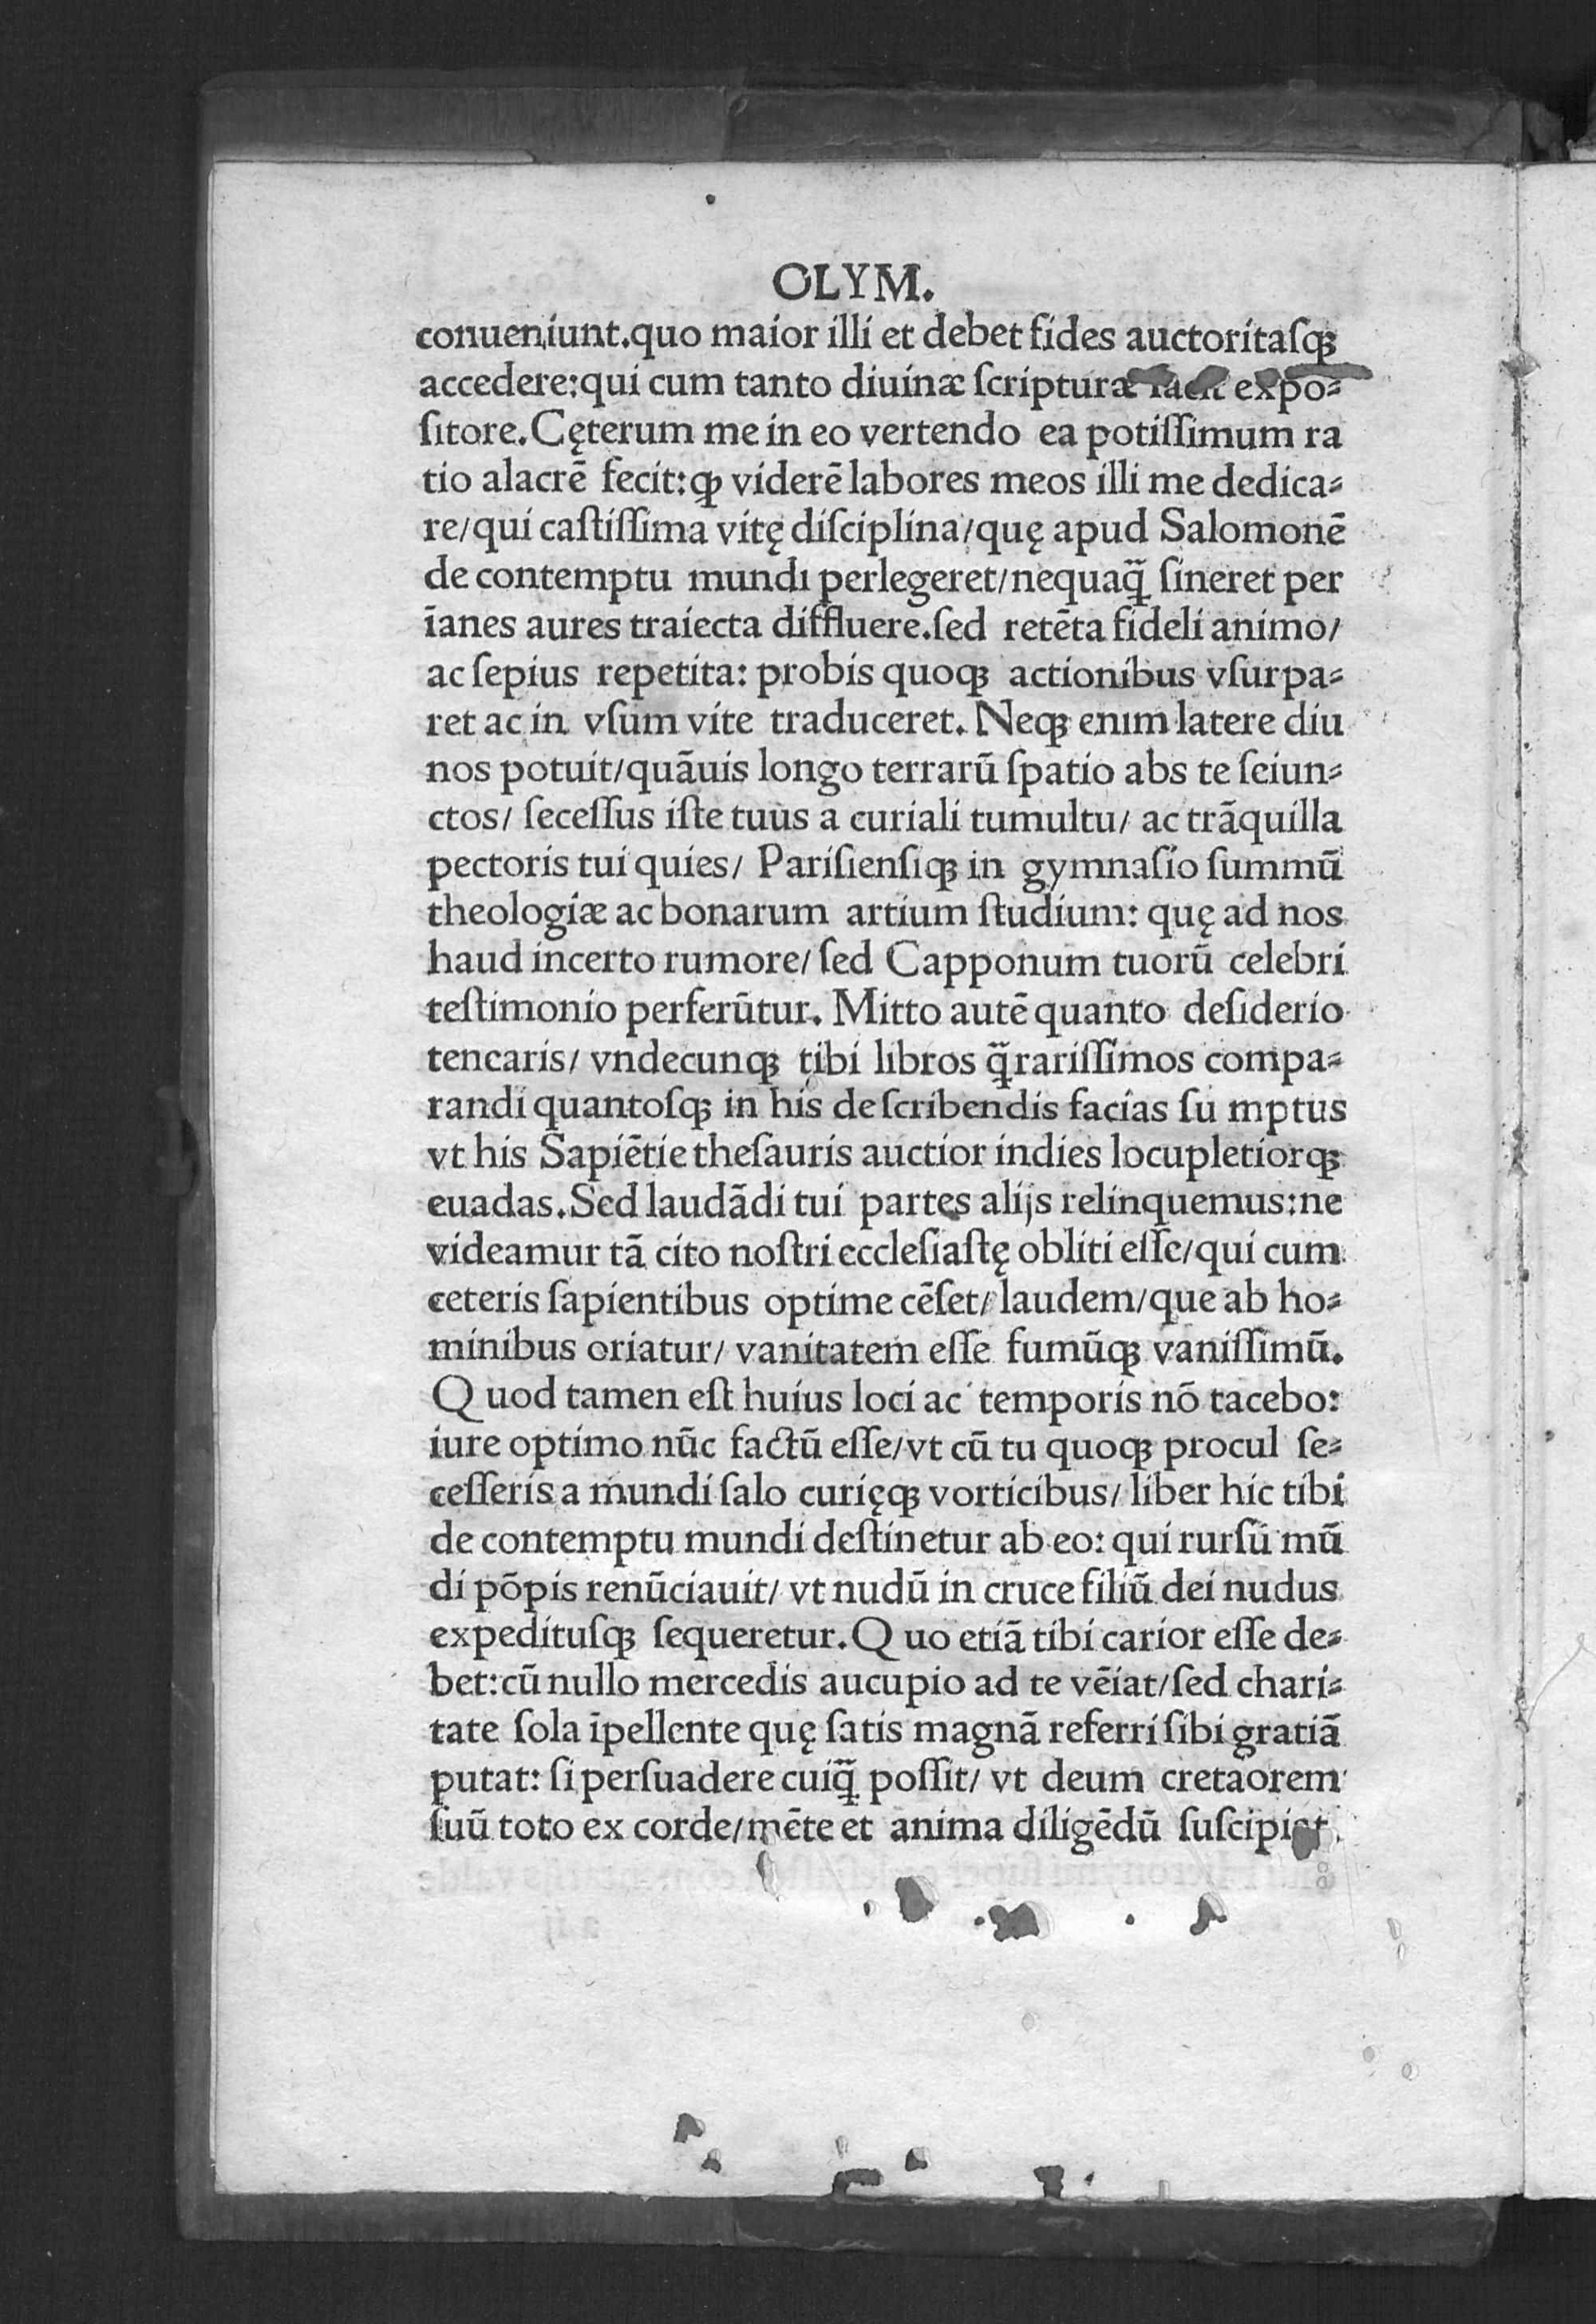 OLYM.
conueniunt.quo maior illi et debet fides auctoritaſqꝫ
accedere:qui cum tanto diuinæ ſcripturæ expo⸗
ſitore.Cęterum me in eo vertendo ea potiſſimum ra
tio alacrē fecit:ꝙ viderē labores meos illi me dedica⸗
re/qui caſtiſſima vitę diſciplina/quę apud Salomonē
de contemptu mundi perlegeret/nequaq̃ ſineret per
īanes aures traiecta diffluere.ſed retēta fideli animo/
ac ſepius repetita: probis quoqꝫ actionibus vſurpa⸗
ret ac in vſum vite traduceret. Neqꝫ enim latere diu
nos potuit/quāuis longo terrarū ſpatio abs te ſeiun⸗
ctos/ ſeceſſus iſte tuus a curiali tumultu/ ac trāquilla
pectoris tui quies/ Pariſienſiqꝫ in gymnaſio ſummū
theologiæ ac bonarum artium ſtudium: quę ad nos
haud incerto rumore/ ſed Capponum tuorū celebri
teſtimonio perferūtur. Mitto autē quanto deſiderio
tenearis/ vndecunqꝫ tibi libros q̃rariſſimos compa⸗
randi quantoſqꝫ in his deſcribendis facias ſu mptus
vt his Sapiētie theſauris auctior indies locupletiorqꝫ
euadas.Sed laudādi tui partes alijs relinquemus:ne
videamur tā cito noſtri eccleſiaſtę obliti eſſe/qui cum
ceteris ſapientibus optime cēſet/ laudem/que ab ho⸗
minibus oriatur/ vanitatem eſſe fumūqꝫ vaniſſimū.
Q uod tamen eſt huius loci ac temporis nō tacebo:
iure optimo nūc factū eſſe/vt cū tu quoqꝫ procul ſe⸗
ceſſeris a mundi ſalo curięqꝫ vorticibus/ liber hic tibi
de contemptu mundi deſtinetur ab eo: qui rurſū mū
di pōpis renūciauit/ vt nudū in cruce filiū dei nudus
expedituſqꝫ ſequeretur.Q uo etiā tibi carior eſſe de⸗
bet:cū nullo mercedis aucupio ad te vēiat/ſed chari⸗
tate ſola īpellente quę ſatis magnā referri ſibi gratiā
putat: ſi perſuadere cuiq̃ poſſit/ vt deum cretaorem
ſuū toto ex corde/mēte et anima diligēdū ſuſcipiat.